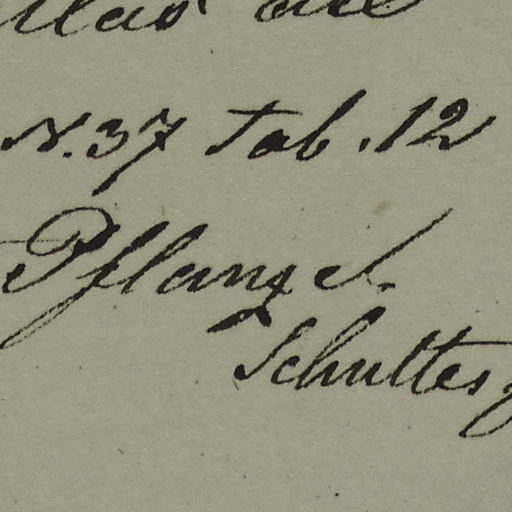 N. 37 Tab. 12
Pflanze
Schultes